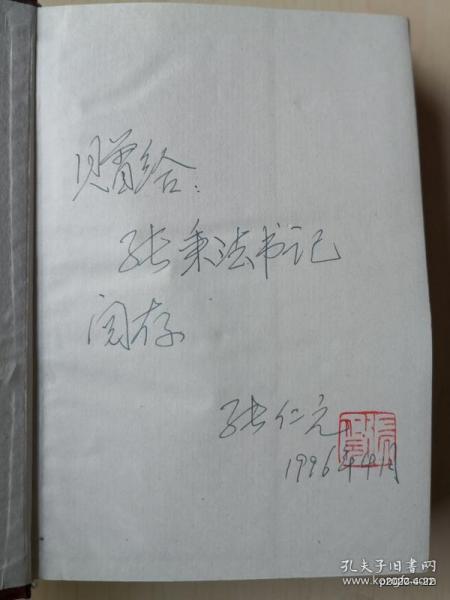 赠给：
张秉法书记
阅存
张仁元
1996年4月
孔夫子旧书网
www.kongfz.com
p2022-4-22